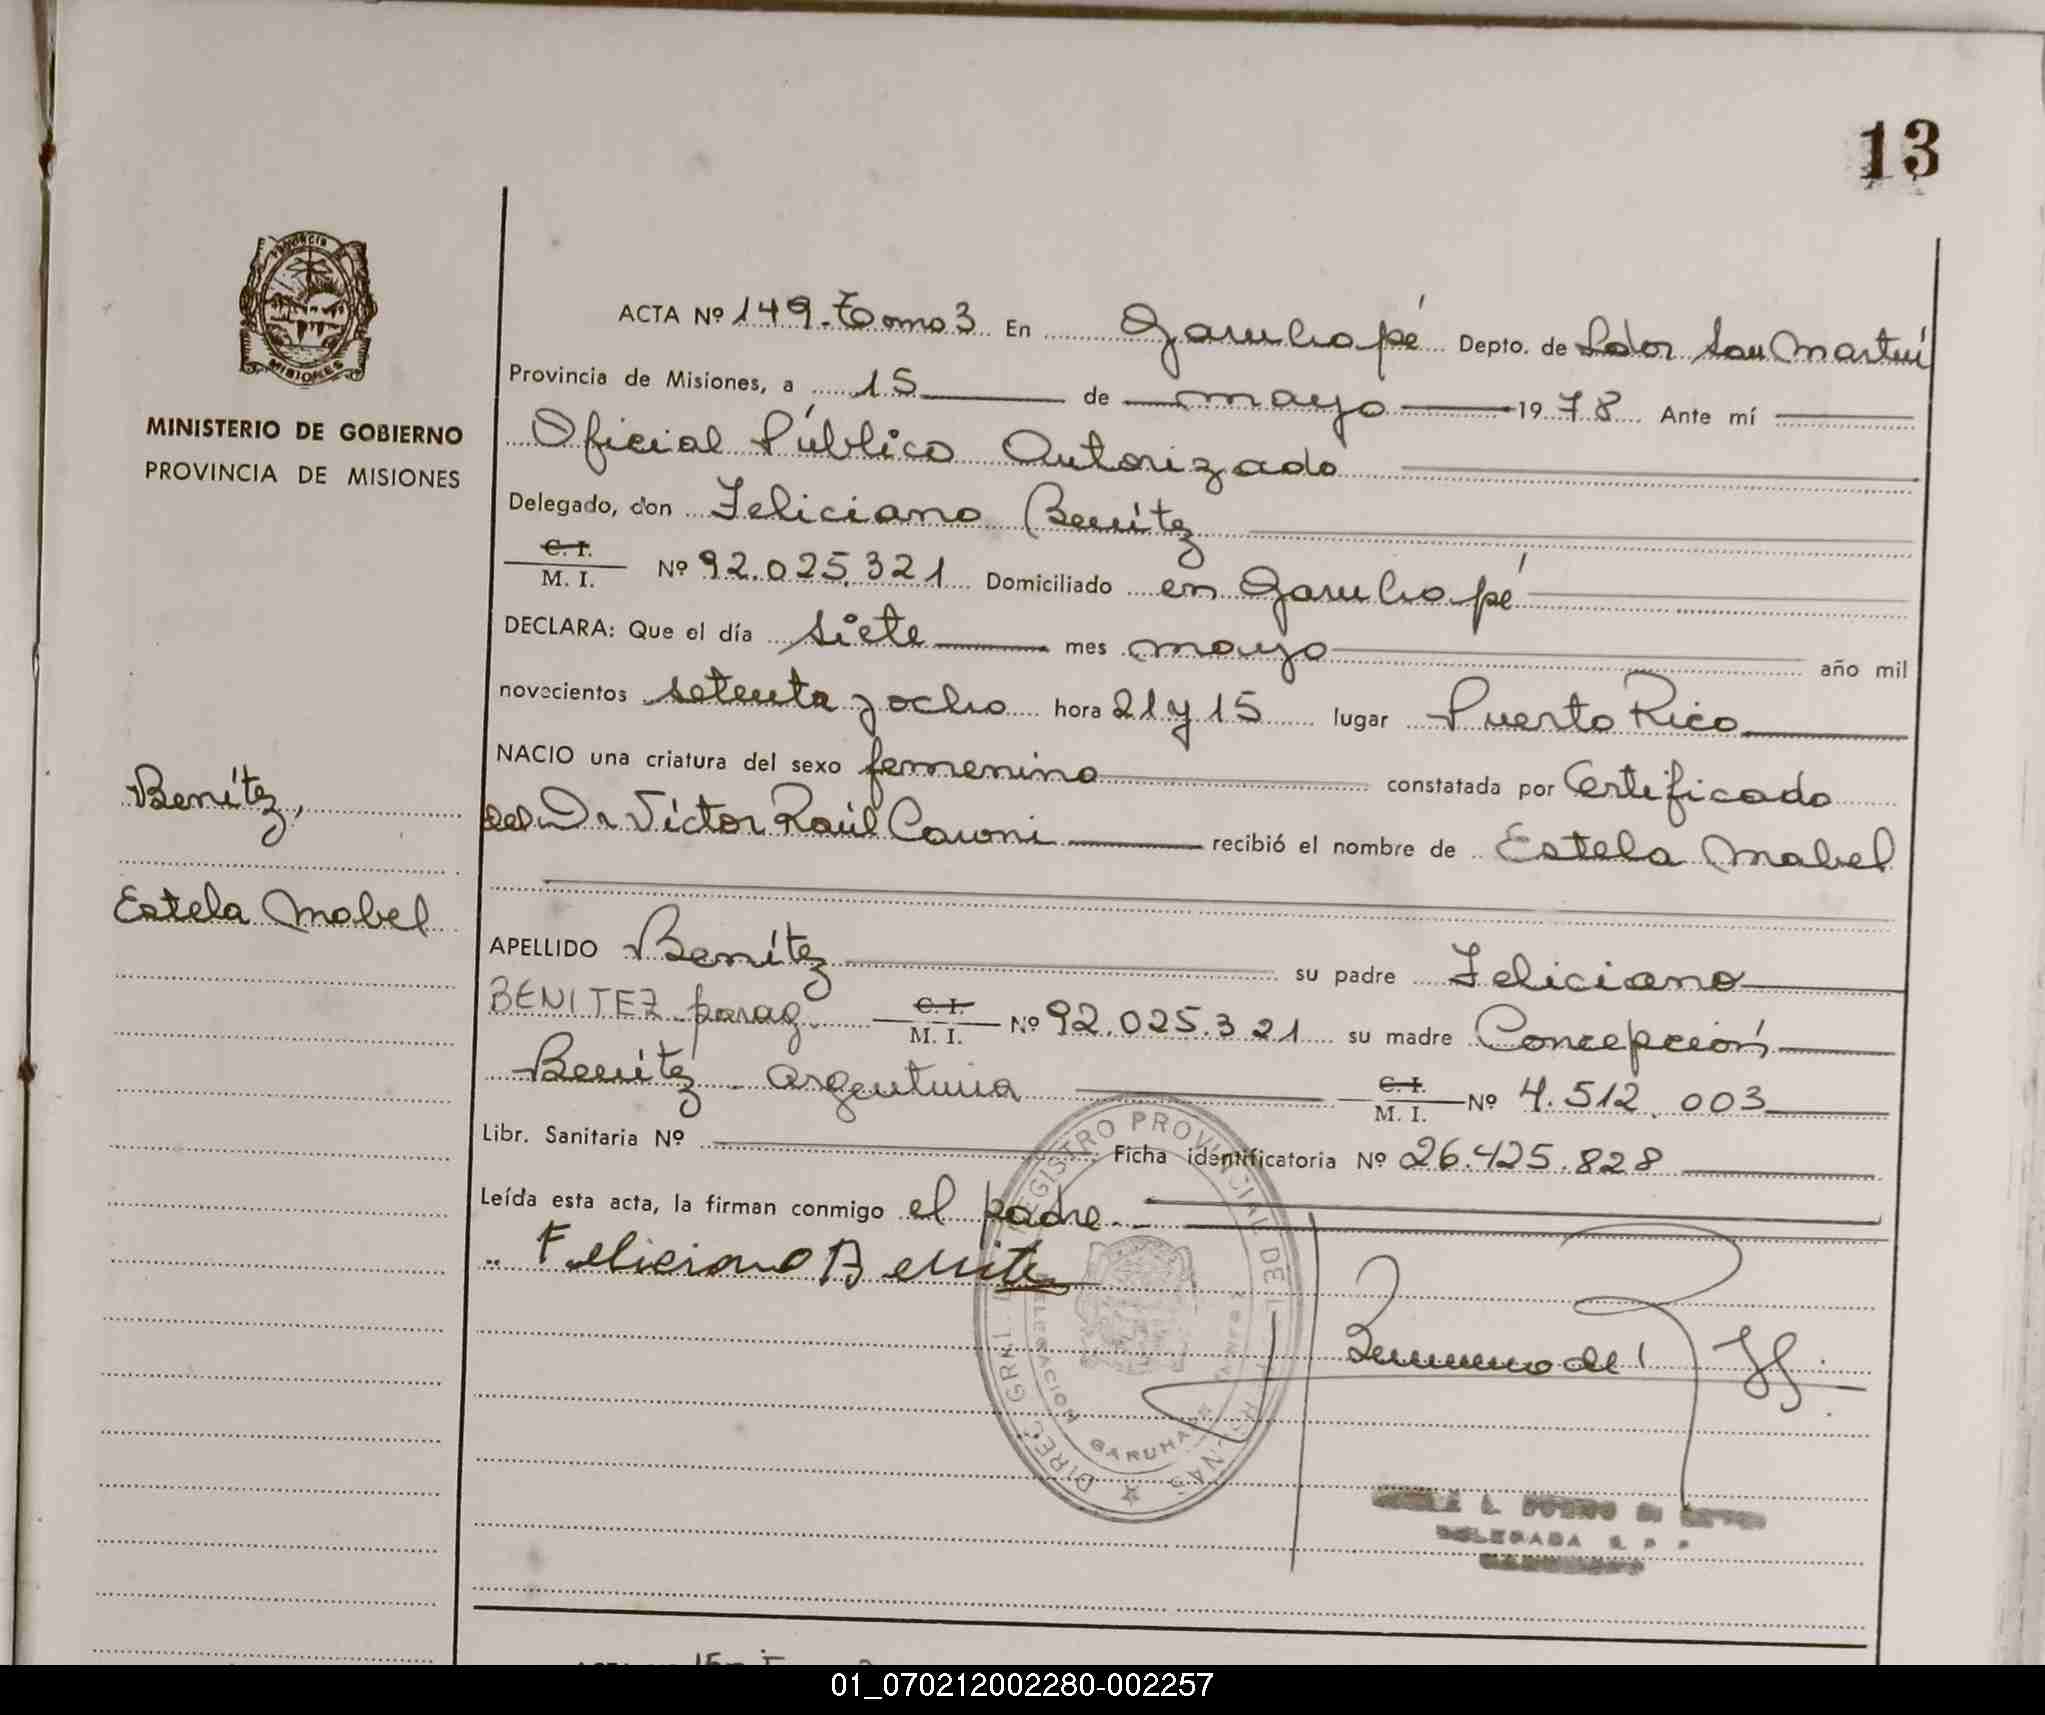 13
PROVINCIA
MISIONES
MINISTERIO DE GOBIERNO
PROVINCIA DE MISIONES
Benítez,
Estela Mabel
ACTA Nº 149. tomo 3 En Garuhapé Depto. de Ldor San Martín
Provincia de Misiones, a 15 de mayo 1978 Ante mí
Oficial Público Autorizado
Delegado, don Feliciano Benítez
C. I.
M. I. Nº 92.025.321 Domiciliado en Garuhapé
DECLARA: Que el día siete mes mayo año mil
novecientos setenta y ocho hora 21 y 15 lugar Puerto Rico
NACIO una criatura del sexo femenino constatada por Certificado
del Dr Víctor Raúl Cavoni recibió el nombre de Estela Mabel
APELLIDO Benítez su padre Feliciano
BENITEZ parag. C. I. M. I. Nº 92.025.321 su madre Concepción
Benítez - argentina C. I. M. I. Nº 4.512.003
Libr. Sanitaria Nº Ficha identificatoria Nº 26.425.828
Leída esta acta, la firman conmigo el padre.-
Feliciano Benitez
DIREC. GRAL. REGISTRO PROVINCIAL DE
DELEGACION GARUHAPE
DELEGADA R. P. P.
01_070212002280-002257